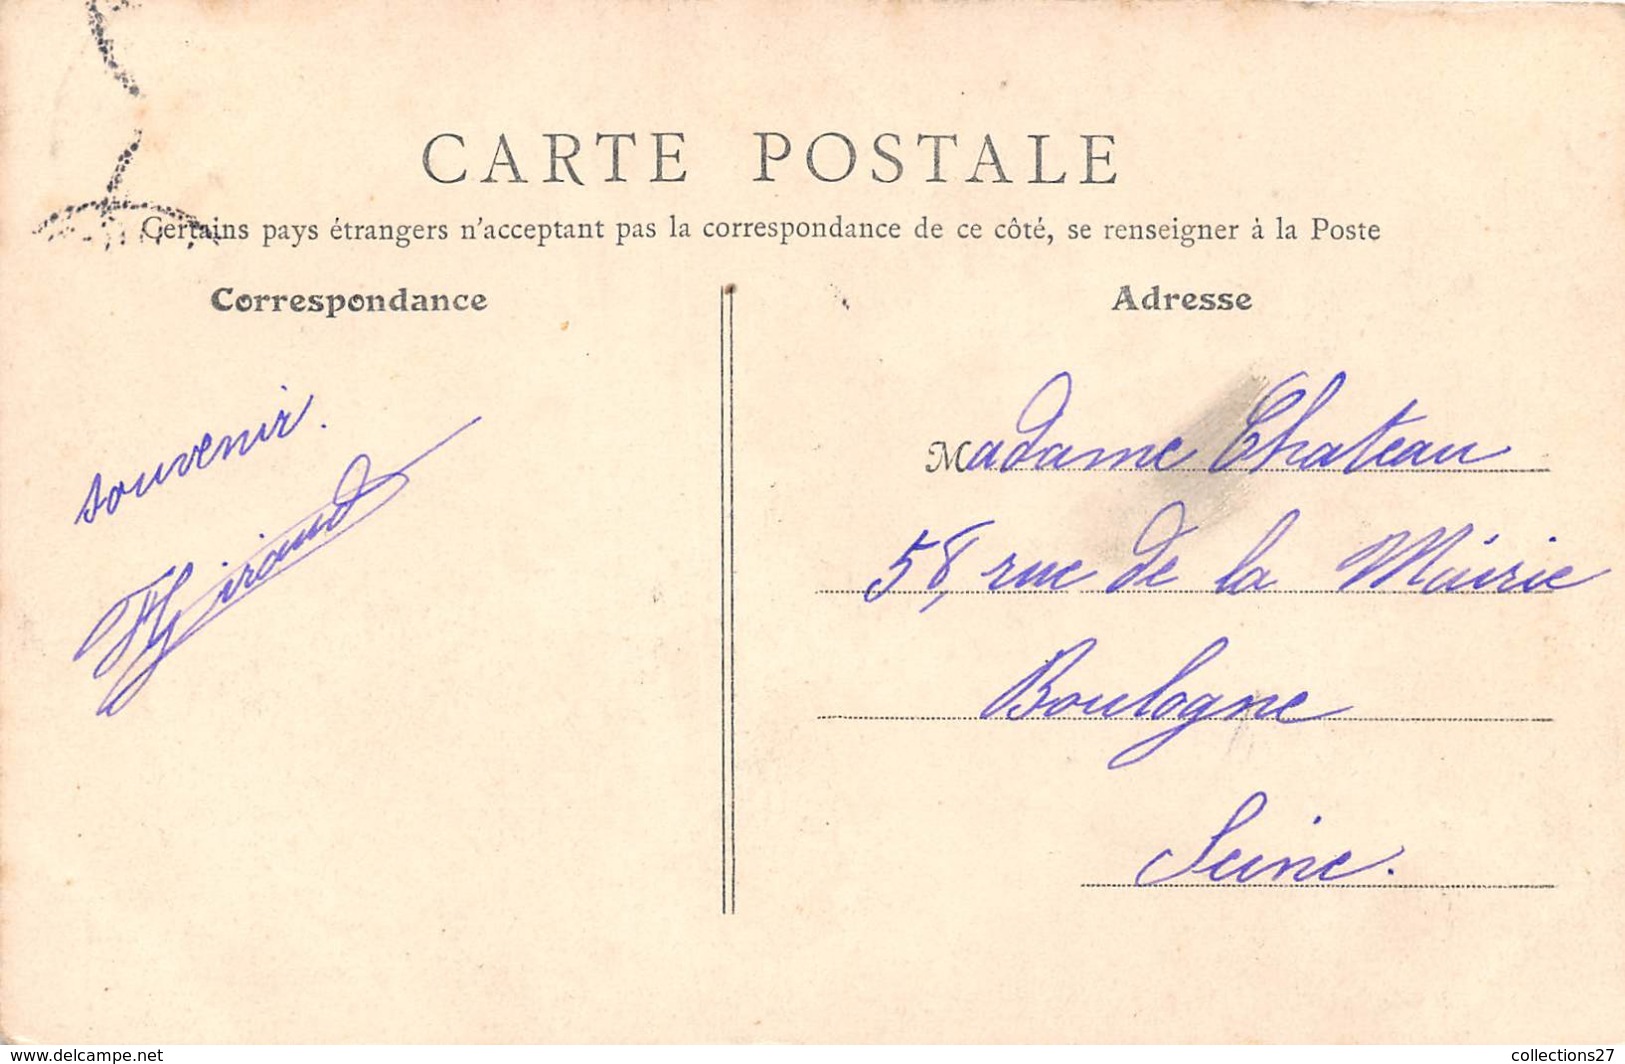 CARTE POSTALE
Certains pays étrangers n'acceptant pas la correspondance de ce côté, se renseigner à la Poste
Correspondance
souvenir.
Giraud
Adresse
Madame Chateau
58, rue de la Mairie
Boulogne
Seine.
www.delcampe.net
collections27